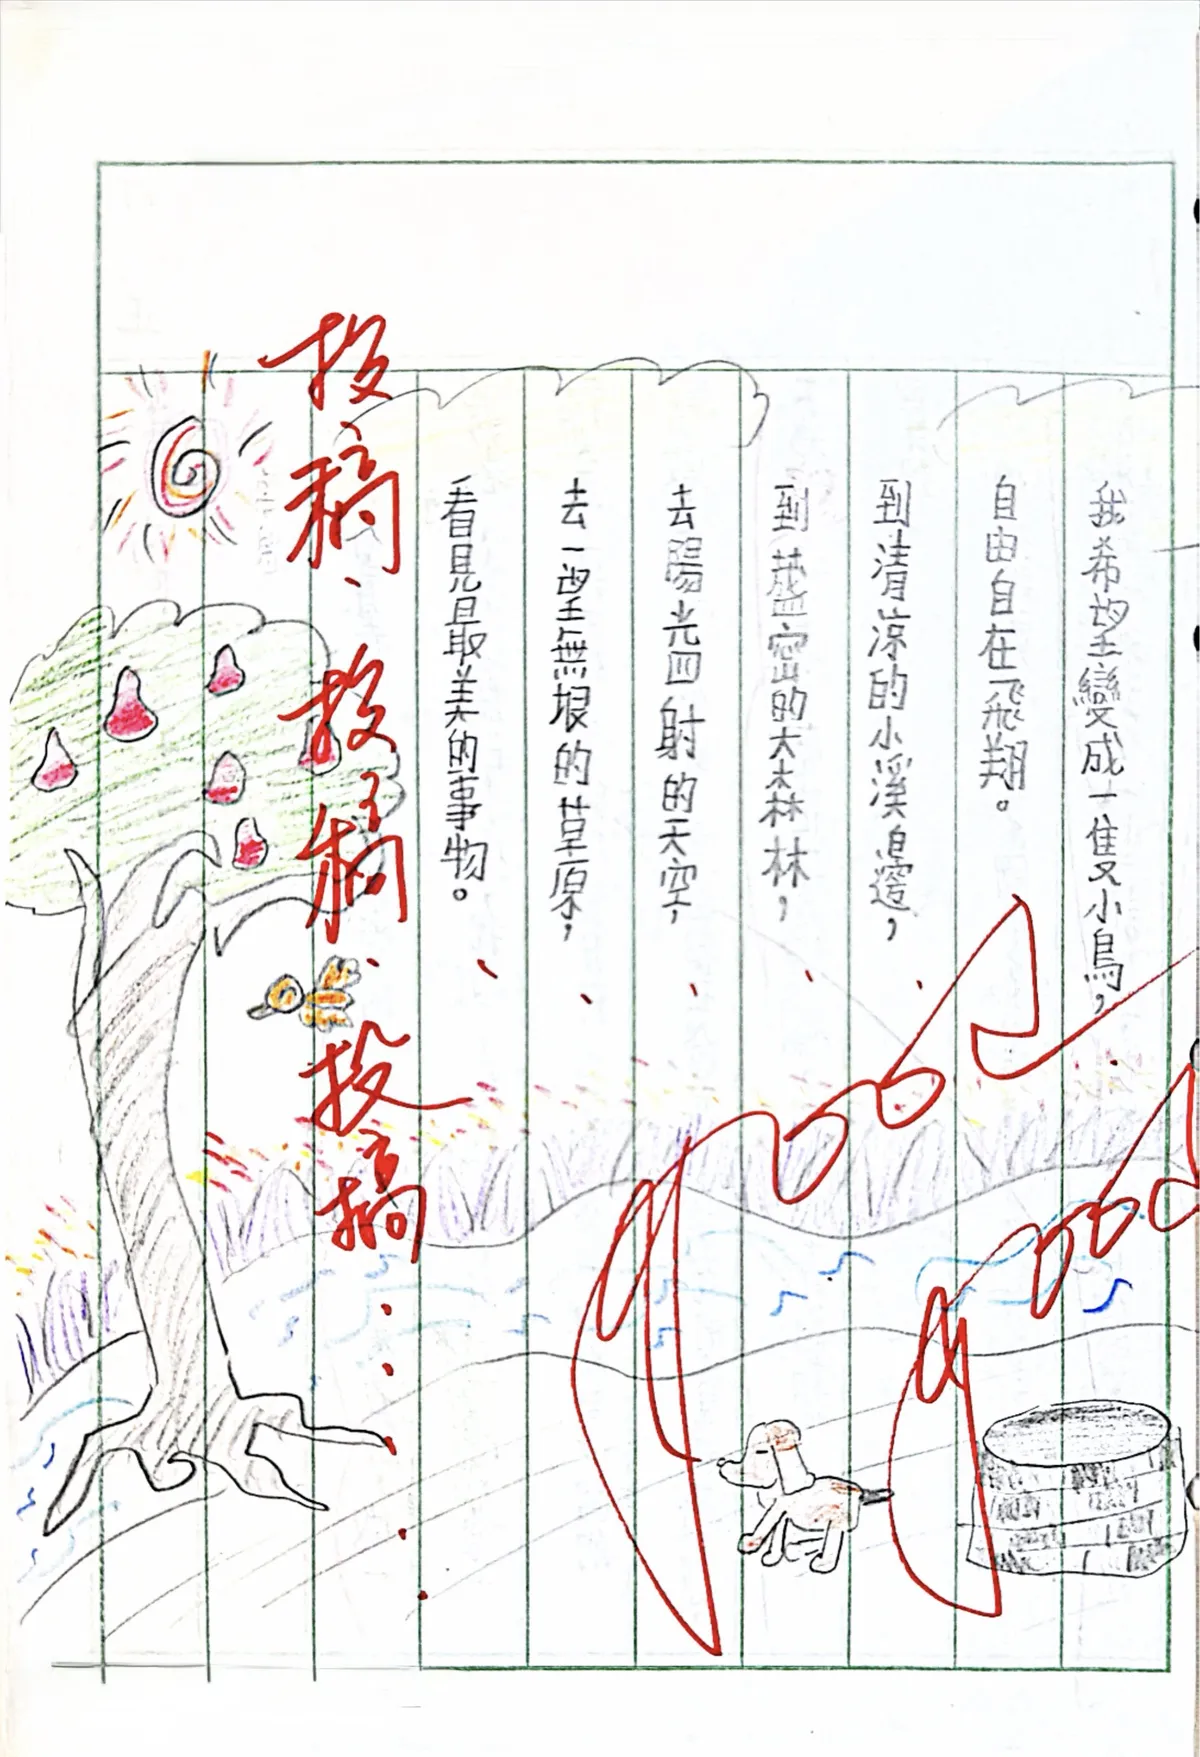 我希望變成一隻小鳥，
自由自在飛翔。
到清涼的小溪邊，
到茂密的大森林，
去陽光四射的天空，
去一望無垠的草原，
看見最美的事物。
投稿、投稿、投稿……
good
good